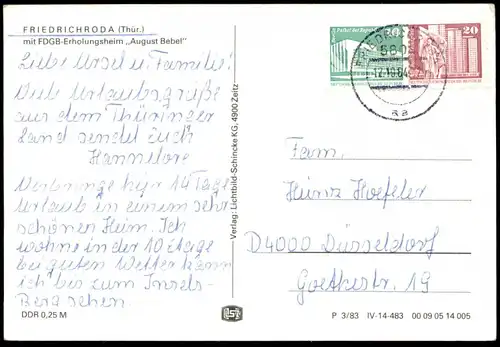 FRIEDRICHRODA (Thür.)
mit FDGB-Erholungsheim „August Bebel"
Liebe Ursel u. Familie!
Viele Urlaubsgrüße
aus dem Thüringer
Land sendet Euch
Hannelore
Verbringe hier 14 Tage
Urlaub in einem sehr
schönen Heim. Ich
wohne in der 10 Etage
bei guten Wetter kann
ich bis zum Insels-
Berg sehen.
DDR 0,25 M
Verlag: Lichtbild-Schincke KG, 4900 Zeitz
20
20
5804
aa
Fam.
Heinz Hoefler
D4000 Düsseldorf
Goethestr. 19
P 3/83 IV-14-483 00 09 05 14 005